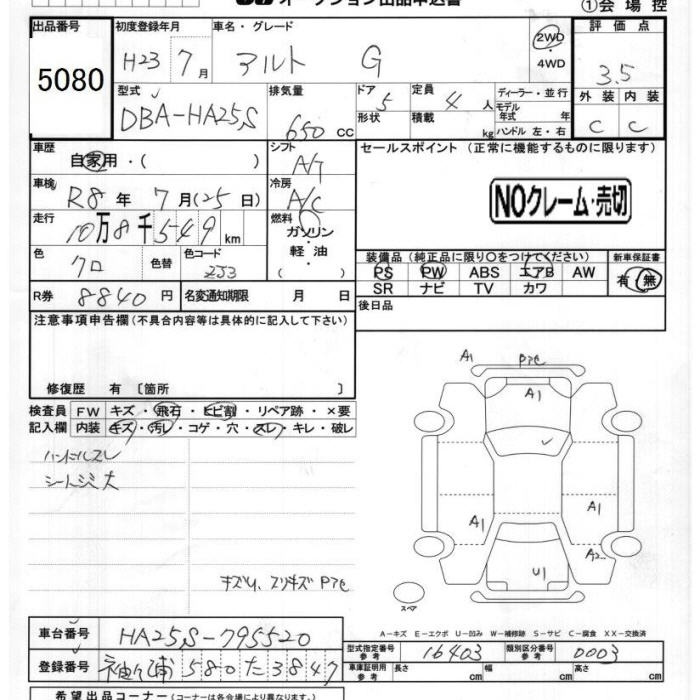 オークション出品申込書
①会場控
出品番号 5080
初度登録年月 H23 7月
車名・グレード アルト G
2WD・4WD
評価点 3.5
外装 C 内装 C
型式 DBA-HA25S
排気量 650 CC
ドア 5
形状
定員 4 人
積載 kg
ディーラー・並行
モデル年式 年
ハンドル 左・右
車歴 自家用・( )
シフト A/T
セールスポイント (正常に機能するものに限ります)
車検 R8年 7月(25日)
冷房 A/C
NOクレーム・売切
走行 10万8千549 km
燃料 ガソリン・軽油
色 クロ 色替
色コード ZJ3
装備品 (純正品に限り○をつけてください)
PS PW ABS エアB AW
SR ナビ TV カワ
新車保証書 有・無
R券 8840円
名変通知期限 月 日
後日品
注意事項申告欄(不具合内容等は具体的に記入して下さい)
修復歴 有 〔箇所 〕
検査員記入欄
FW キズ・飛石・ヒビ割・リペア跡・×要
内装 キズ・汚レ・コゲ・穴・スレ・キレ・破レ
ハンドルスレ
シートシミ大
A1
A1
A1
A1
A2
U1
スペア
A-キズ E-エクボ U-凹み W-補修跡 S-サビ C-腐食 XX-交換済
車台番号 HA25S-795520
登録番号 580 た 3847
型式指定番号 参考 16403
類別区分番号 参考 0003
車庫証明用 参考 長さ cm 幅 cm 高さ cm
希望出品コーナー(コーナーは各会場により異なります。)